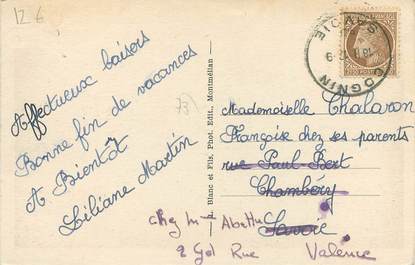 12 €
Affectueux baisers
Bonne fin de vacances
A Bientôt
Liliane Martin
73
L. Blanc et Fils, Phot. Edit., Montmélian
COGNIN
SAVOIE
Mademoiselle Chalaron
Françoise chez ses parents
rue Paul Bert
Chambéry
Savoie
chez Mme
2 Rue Valence